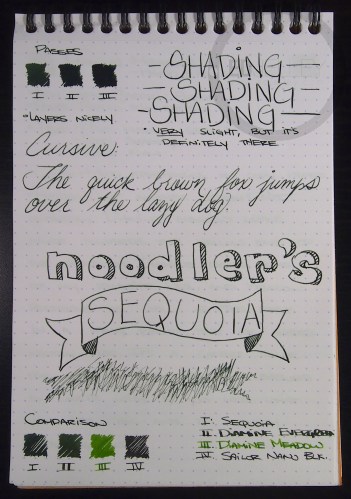 PASSES
I II III
-LAYERS NICELY
-SHADING-
-SHADING-
-SHADING-
- VERY SLIGHT, BUT IT'S
DEFINITELY THERE
Cursive:
The quick brown fox jumps
over the lazy dog.
noodler's
SEQUOIA
COMPARISON
I II III IV
I: SEQUOIA
II: DIAMINE EVERGREEN
III: DIAMINE MEADOW
IV: SAILOR NANO BLK.